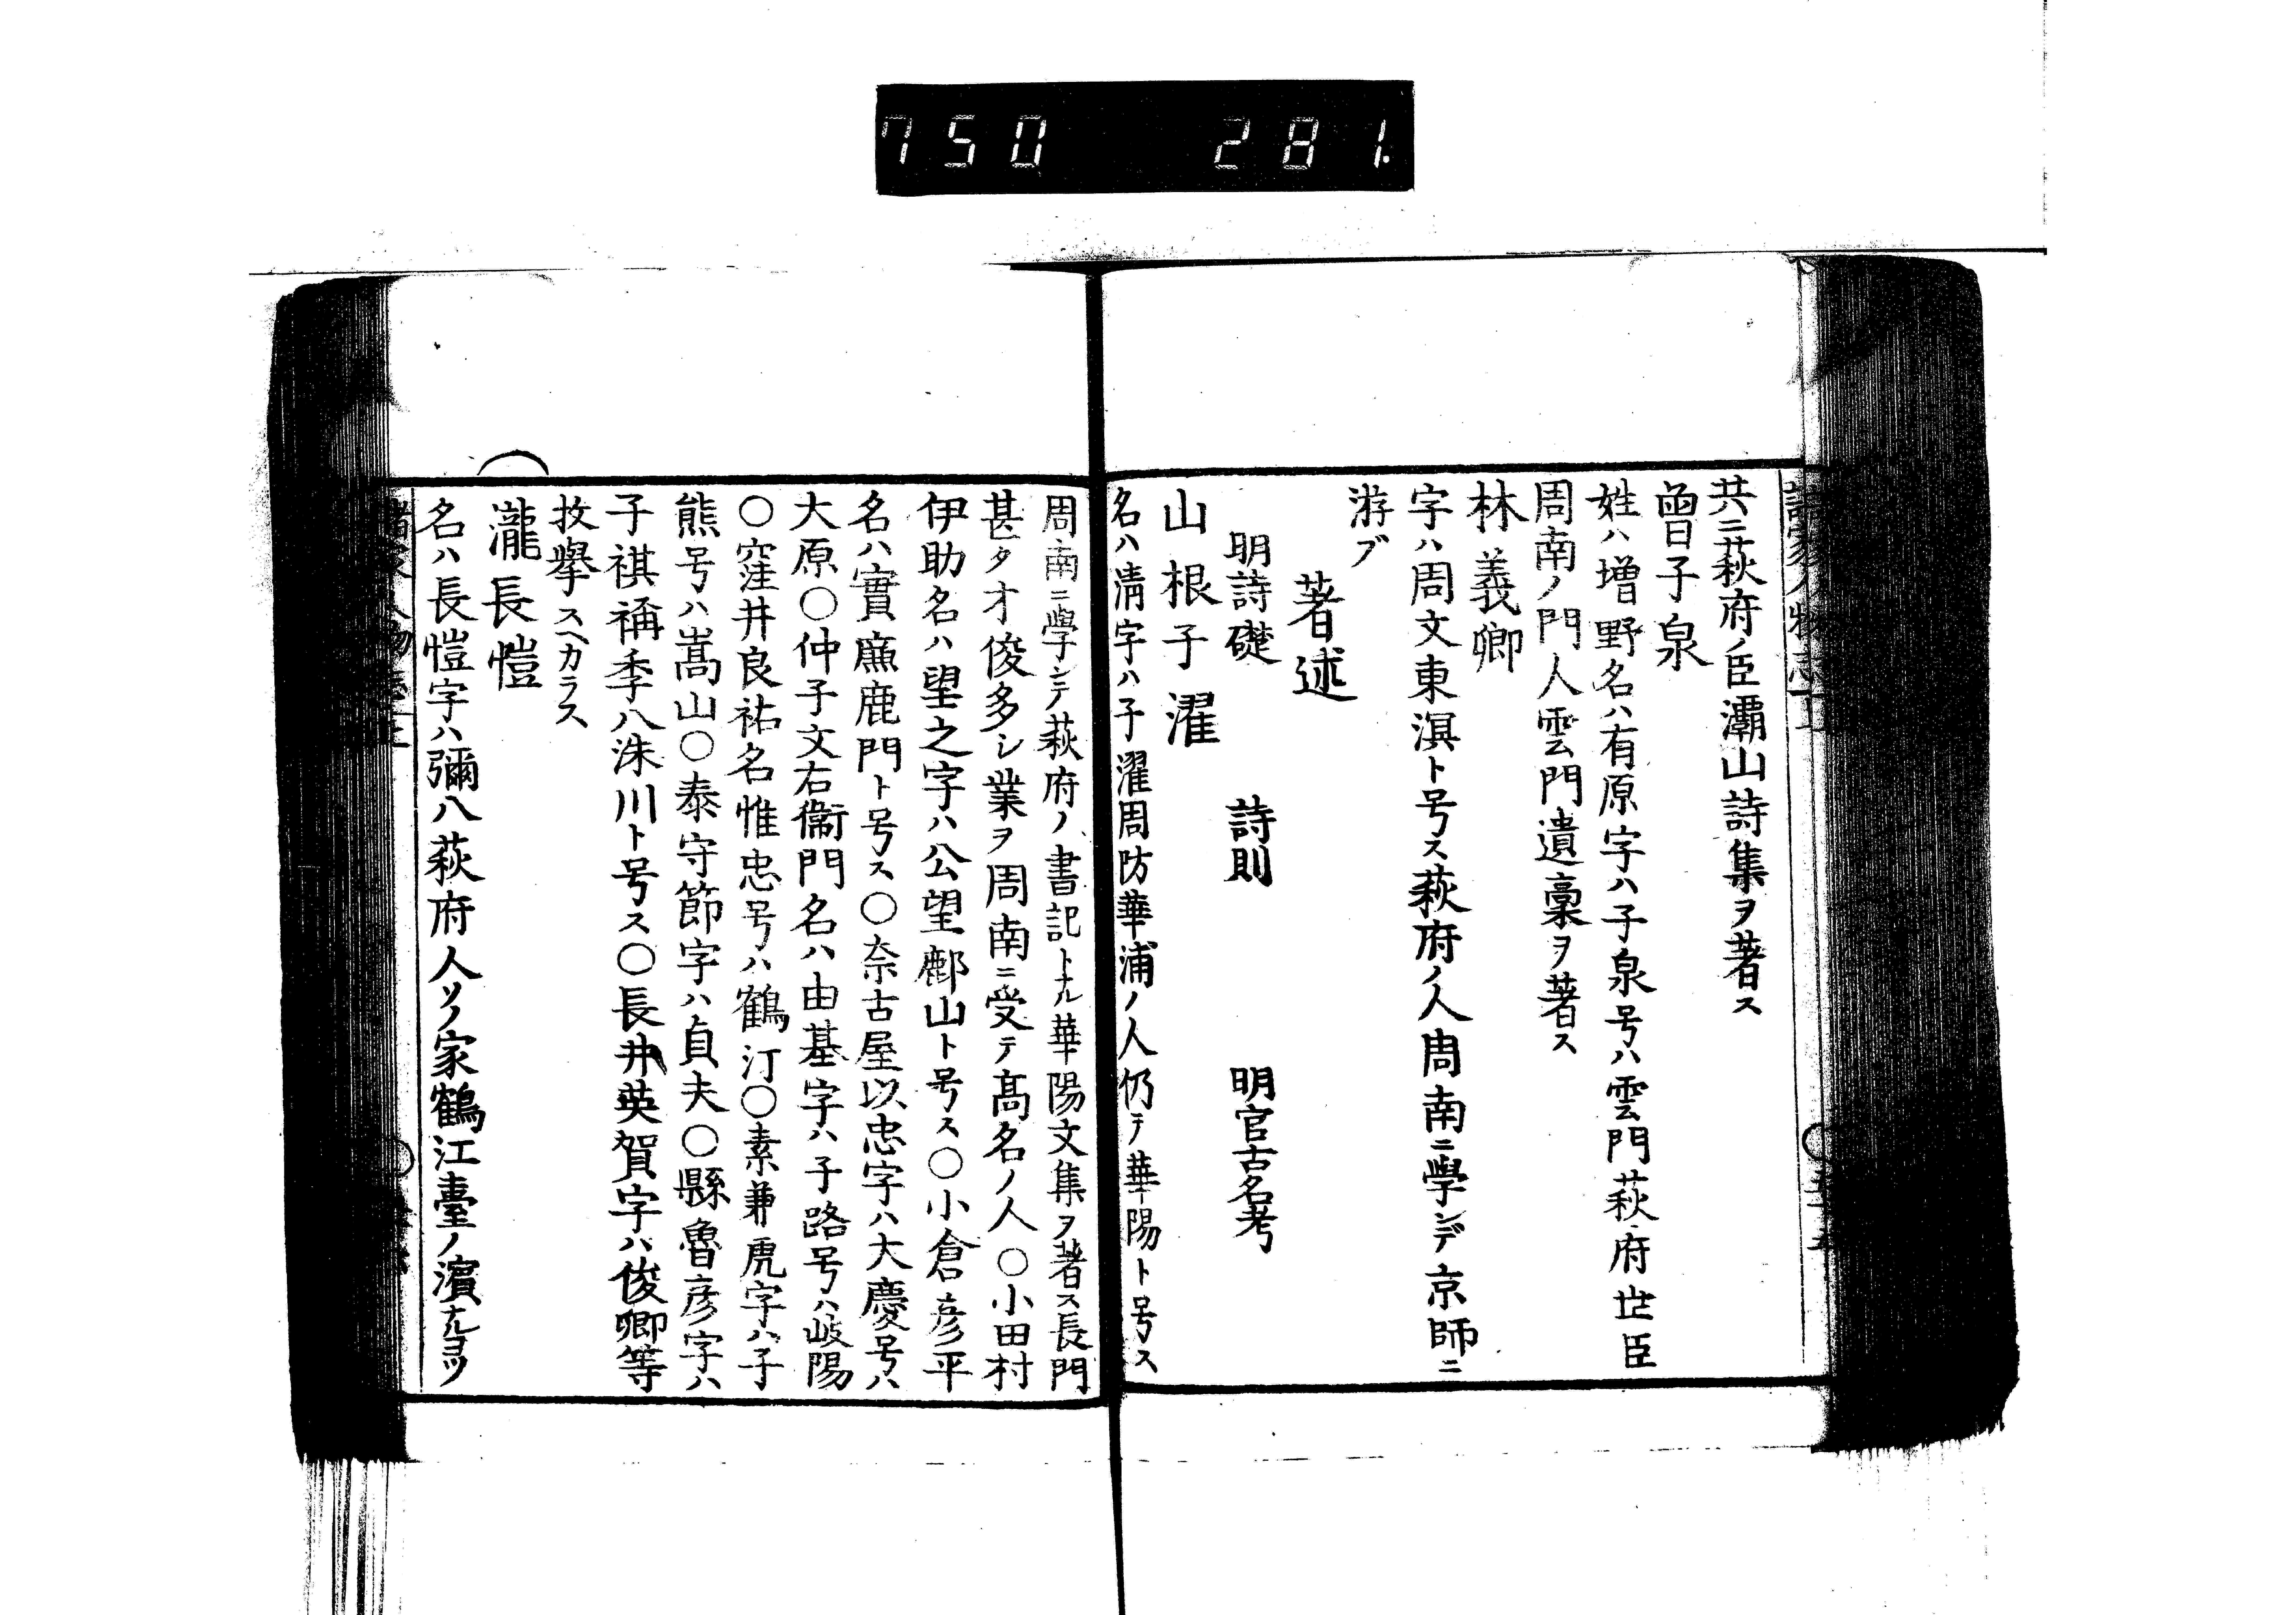 750 281.
共ニ萩府ノ臣灞山詩集ヲ著ス
曾子泉
姓ハ増野名ハ有原字ハ子泉号ハ雲門萩府世臣
周南ノ門人雲門遺稾ヲ著ス
林義卿
字ハ周文東溟ト号ス萩府ノ人周南ニ學ンデ京師ニ
游ブ
著述
明詩礎 詩則 明官古名考
山根子濯
名ハ清字ハ子濯周防華浦ノ人仍テ華陽ト号ス
周南ニ學ンデ萩府ノ書記トナル華陽文集ヲ著ス長門
甚タオ俊多シ業ヲ周南ニ受テ髙名ノ人〇小田村
伊助名ハ望之字ハ公望鄜山ト号ス〇小倉彦平
名ハ實廉鹿門ト号ス〇奈古屋以忠字ハ大慶号ハ
大原〇仲子文右衞門名ハ由基字ハ子路号ハ岐陽
〇窪井良祐名惟忠号ハ鶴汀〇素兼虎字ハ子
熊号ハ嵩山〇泰守節字ハ貞夫〇縣魯彦字ハ
子祺稱季八洙川ト号ス〇長井英賀字ハ俊卿等
枚擧スヘカラス
瀧長愷
名ハ長愷字ハ彌八萩府人ソノ家鶴江臺ノ濱ナルヨツ